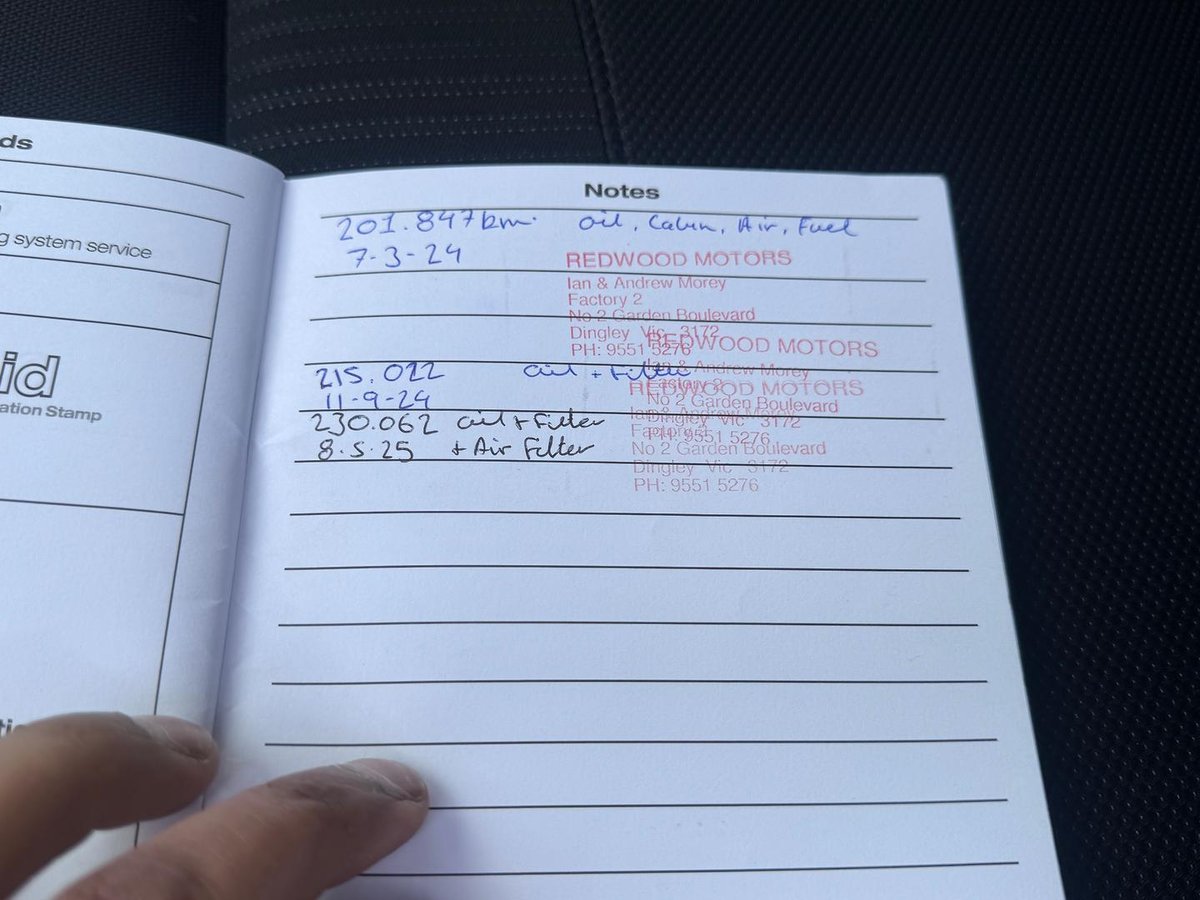 ds
g system service
id
ation Stamp
Notes
201.847km. Oil, Cabin, Air, Fuel
7-3-24
REDWOOD MOTORS
Ian & Andrew Morey
Factory 2
No 2 Garden Boulevard
Dingley Vic 3172
PH: 9551 5276
REDWOOD MOTORS
Ian & Andrew Morey
Factory 2
No 2 Garden Boulevard
Dingley Vic 3172
PH: 9551 5276
215.022 Oil + Filter
11-9-24
REDWOOD MOTORS
Ian & Andrew Morey
Factory 2
No 2 Garden Boulevard
Dingley Vic 3172
PH: 9551 5276
230.062 Oil + Filter
8.5.25 + Air Filter